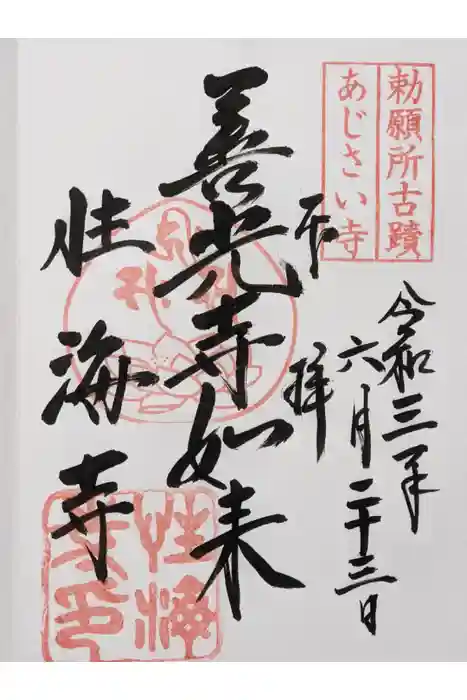 勅願所古蹟
あじさい寺
令和三年
六月二十三日
奉拝
善光寺如来
性海寺
性海
寺印